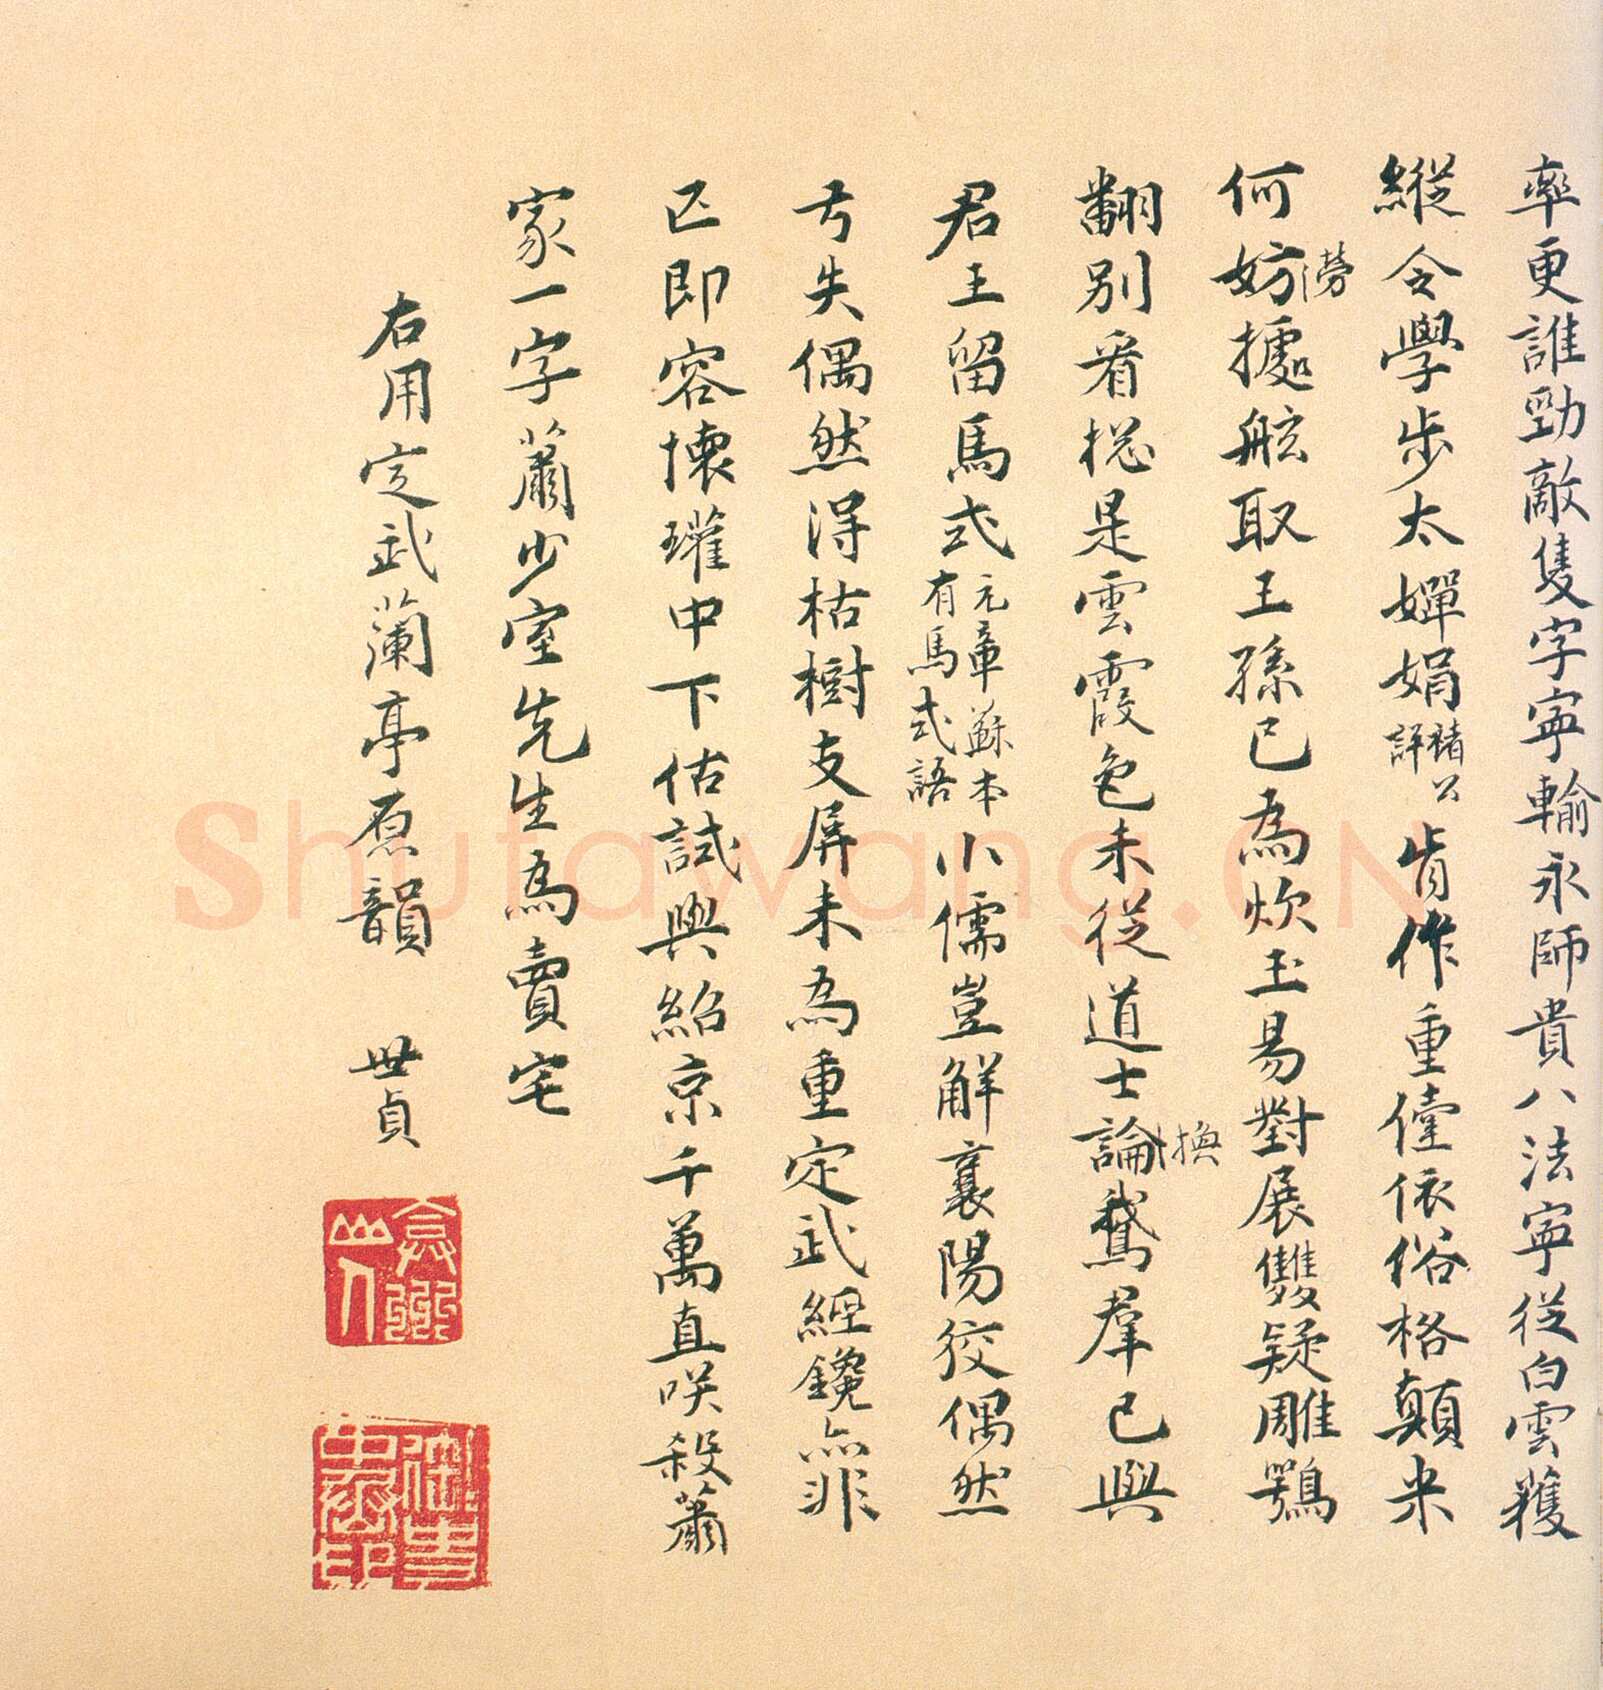 率更誰勁敵隻字寧輸永師貴八法寧從白雲獲
縱令學步太嬋娟褚公評肯作重儓依俗格顛米
何妨勞攄舷取王孫已為炊玉易對展雙疑雕鶚
翻別看揔是雲霞色未從道士論換鵝羣已與
君王留馬式元章蘇本有馬式語小儒豈解襄陽狡偶然
亏失偶然得枯樹支屏未為重定武經鑱亦非
匹即容懷瓘中下估試與紹京千萬直咲殺蕭
家一字蕭少室先生為賣宅
右用定武蘭亭原韻 世貞
Shutawang.CN